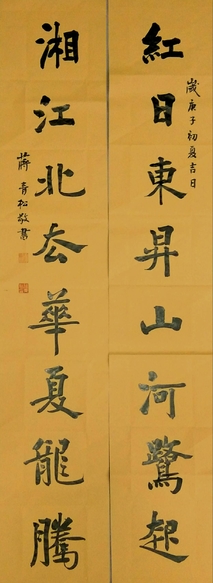 紅日東昇山河驚起
歲庚子初夏吉日
湘江北去華夏龍騰
蔣青松敬書